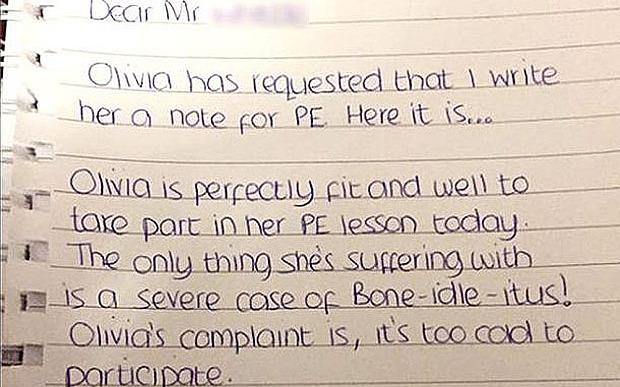 Dear Mr
Olivia has requested that I write
her a note for PE Here it is...
Olivia is perfectly fit and well to
take part in her PE lesson today.
The only thing she's suffering with
is a severe case of Bone-idle-itus!
Olivia's complaint is, it's too cold to
participate.